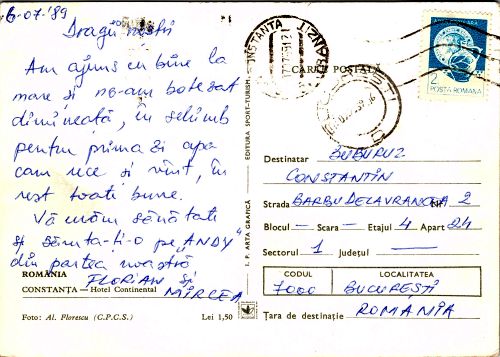 6-07.'89
Dragii noștri
Am ajuns cu bine la
mare și ne-am botezat
dimineață, în schimb
pentru prima zi apa
cam rece și vînt, în
rest toate bune.
Vă urăm sănătate
și săruta-ți-o pe „ANDY"
din partea noastră
FLORIAN și
MIRCEA
ROMÂNIA
CONSTANȚA — Hotel Continental
Foto: Al. Florescu (C.P.C.S.)
Lei 1,50
I. P. ARTA GRAFICĂ
EDITURA SPORT-TURISM
CONSTANȚA
CARTE POSTALĂ
2
POSTA ROMANA
Destinatar BUBURUZ
CONSTANTIN
Strada BARBU DELAVRANCEA Nr. 2
Blocul — Scara — Etajul 4 Apart 24
Sectorul 1 Județul —
CODUL LOCALITATEA
7000 BUCUREȘTI
Țara de destinație ROMÂNIA